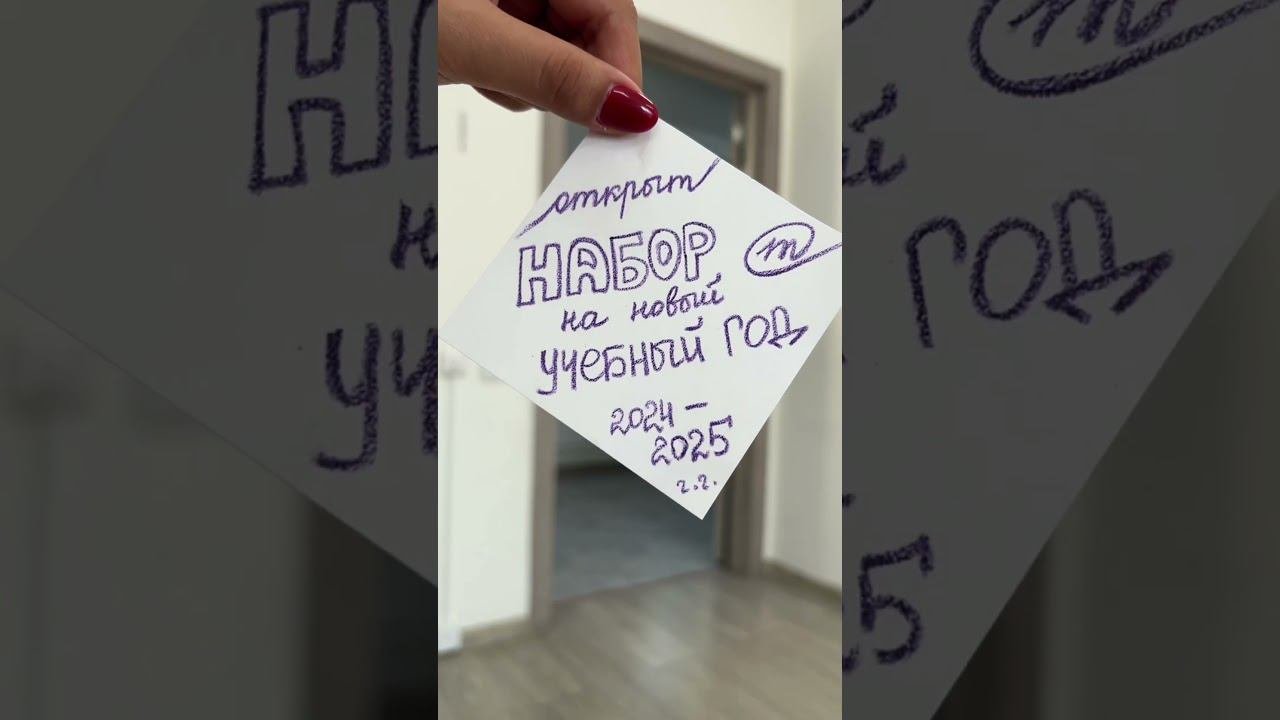 открыт
НАБОР
m
на новый
УЧЕБНЫЙ ГОД
2024-
2025
г.г.